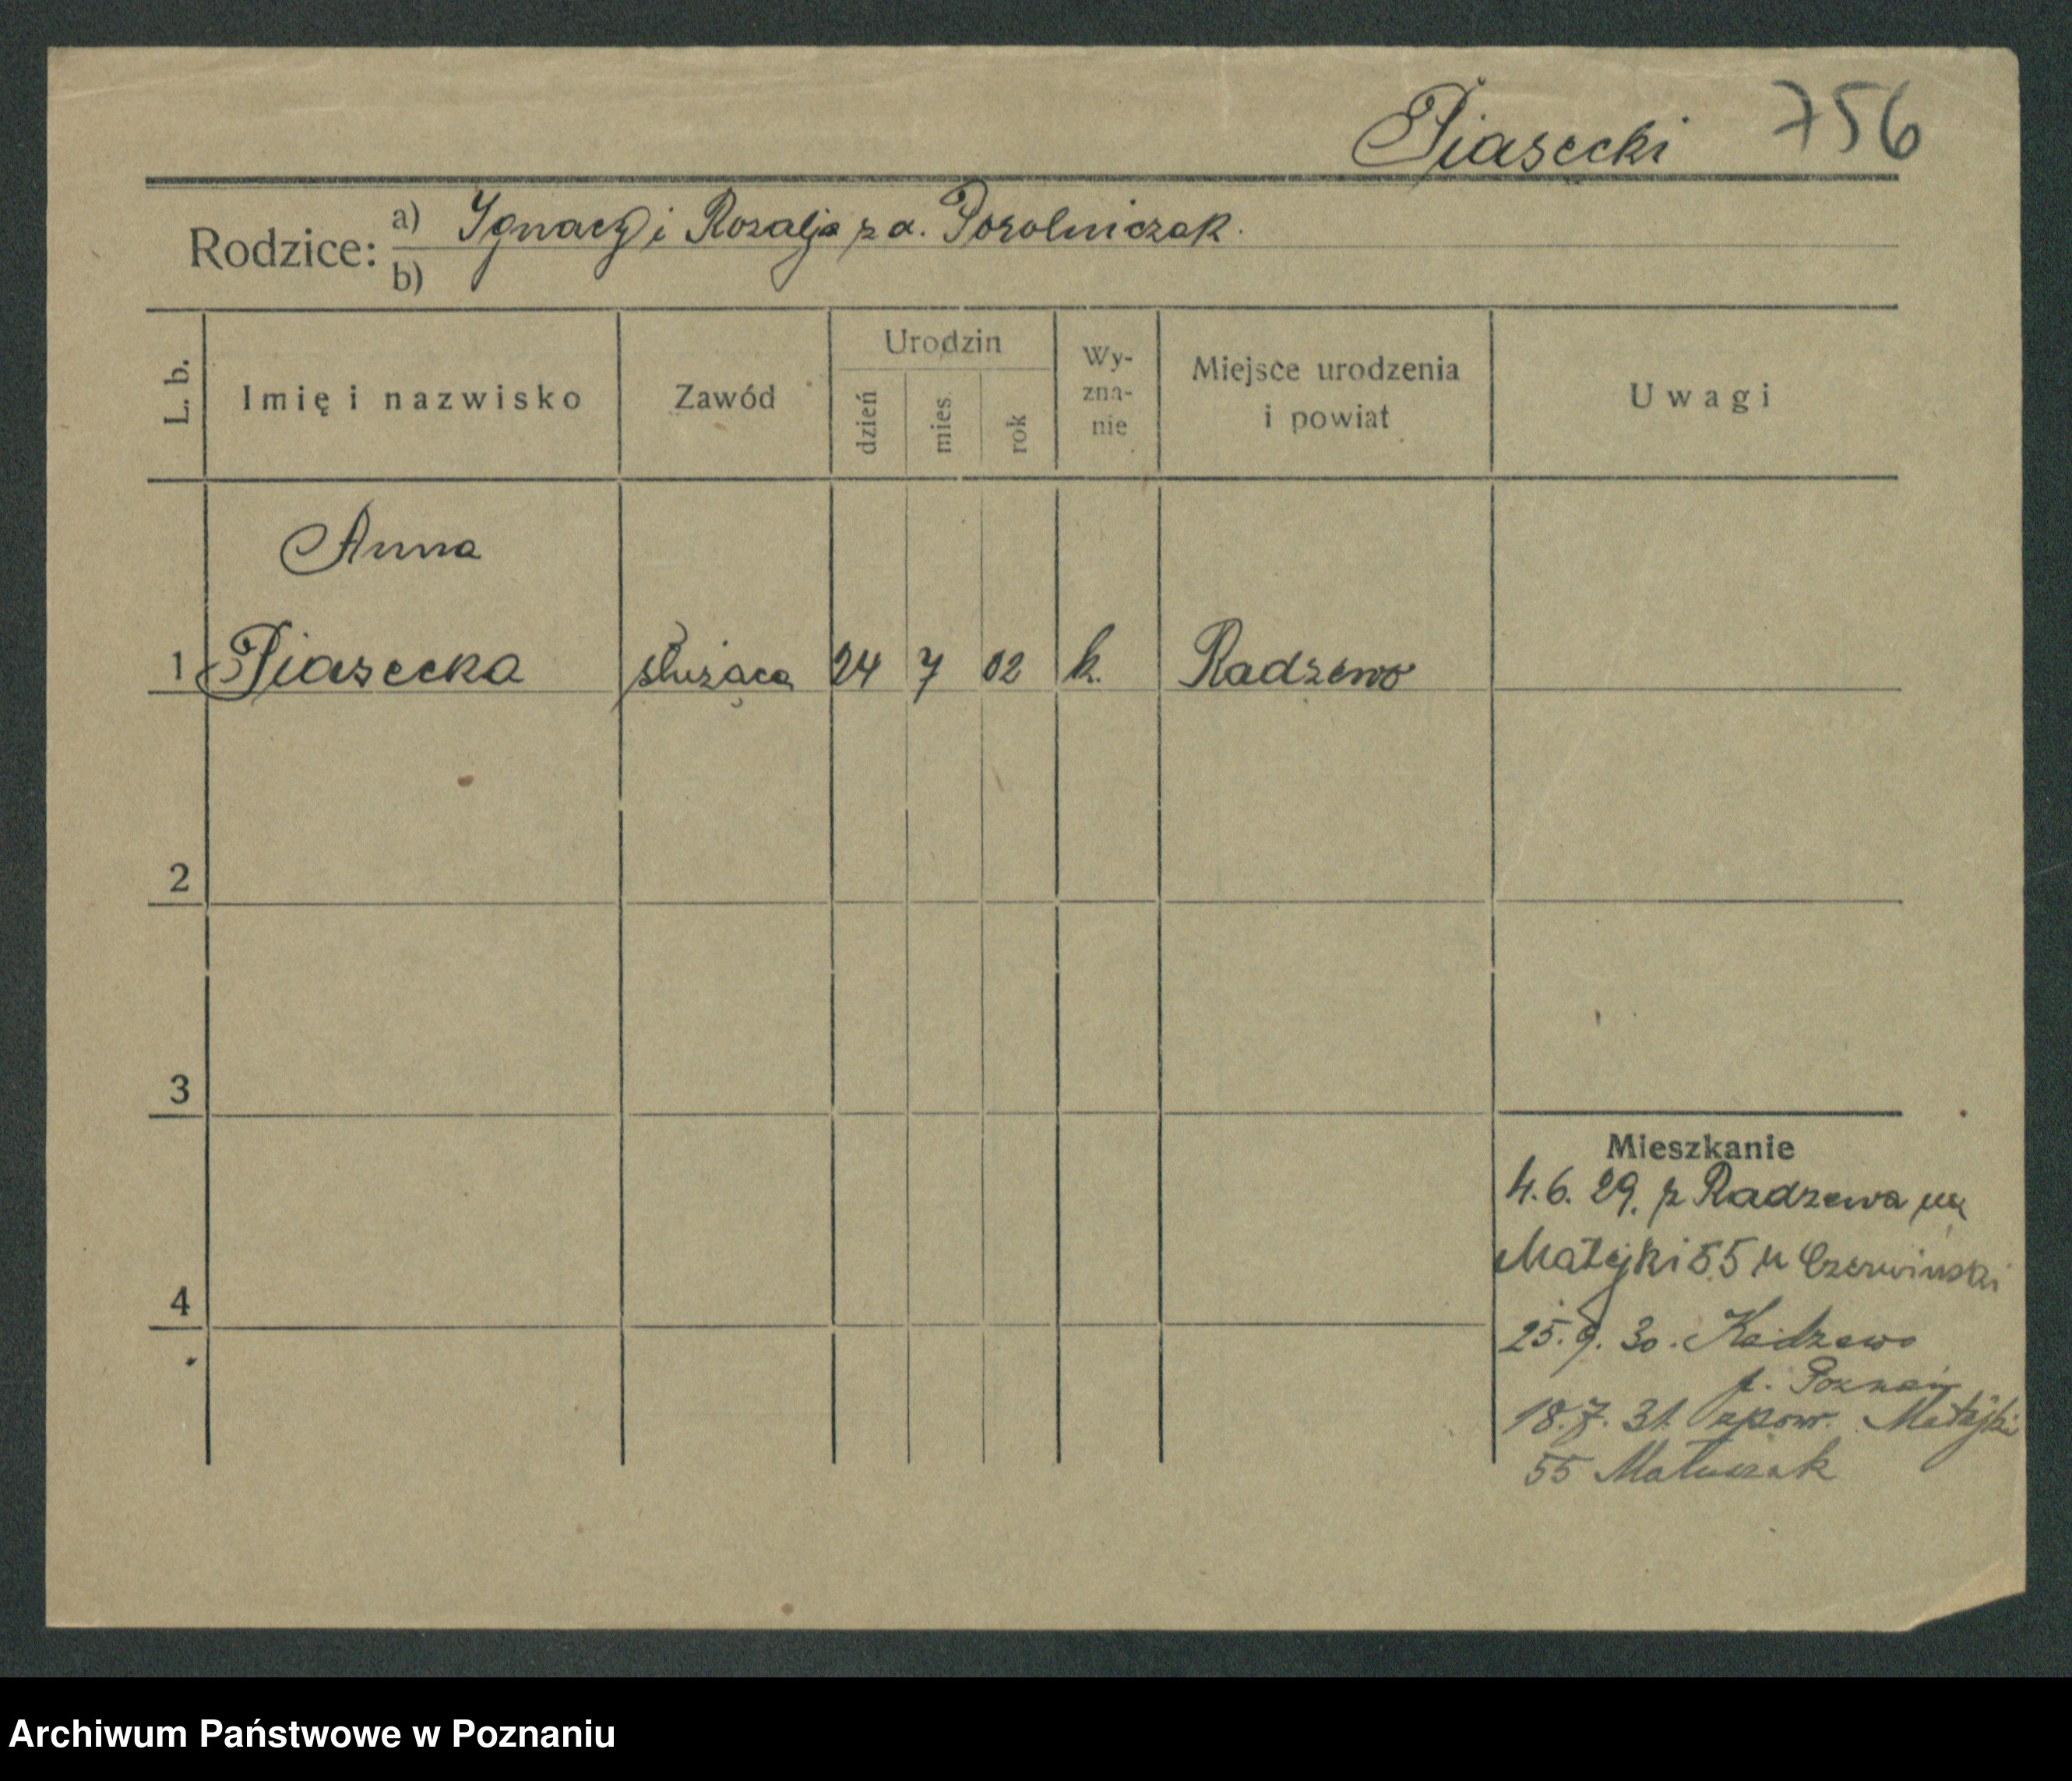 Piasecki 756
Rodzice: a) Ignacy i Rozalja z d. Porolniczak.
b)
L. b.
Imię i nazwisko
Zawód
Urodzin
dzień
mies.
rok
Wy-
zna-
nie
Miejsce urodzenia
i powiat
Uwagi
Anna
1 Piasecka służąca 24 7 02 k. Radzewo
2
3
Mieszkanie
4.6.29. z Radzewa na
Matejki 55 u Czerwiński
4
25.9.30. Radzewo
p. Poznań
18.7.31. zpow. Matejki
55 Matuszak
Archiwum Państwowe w Poznaniu